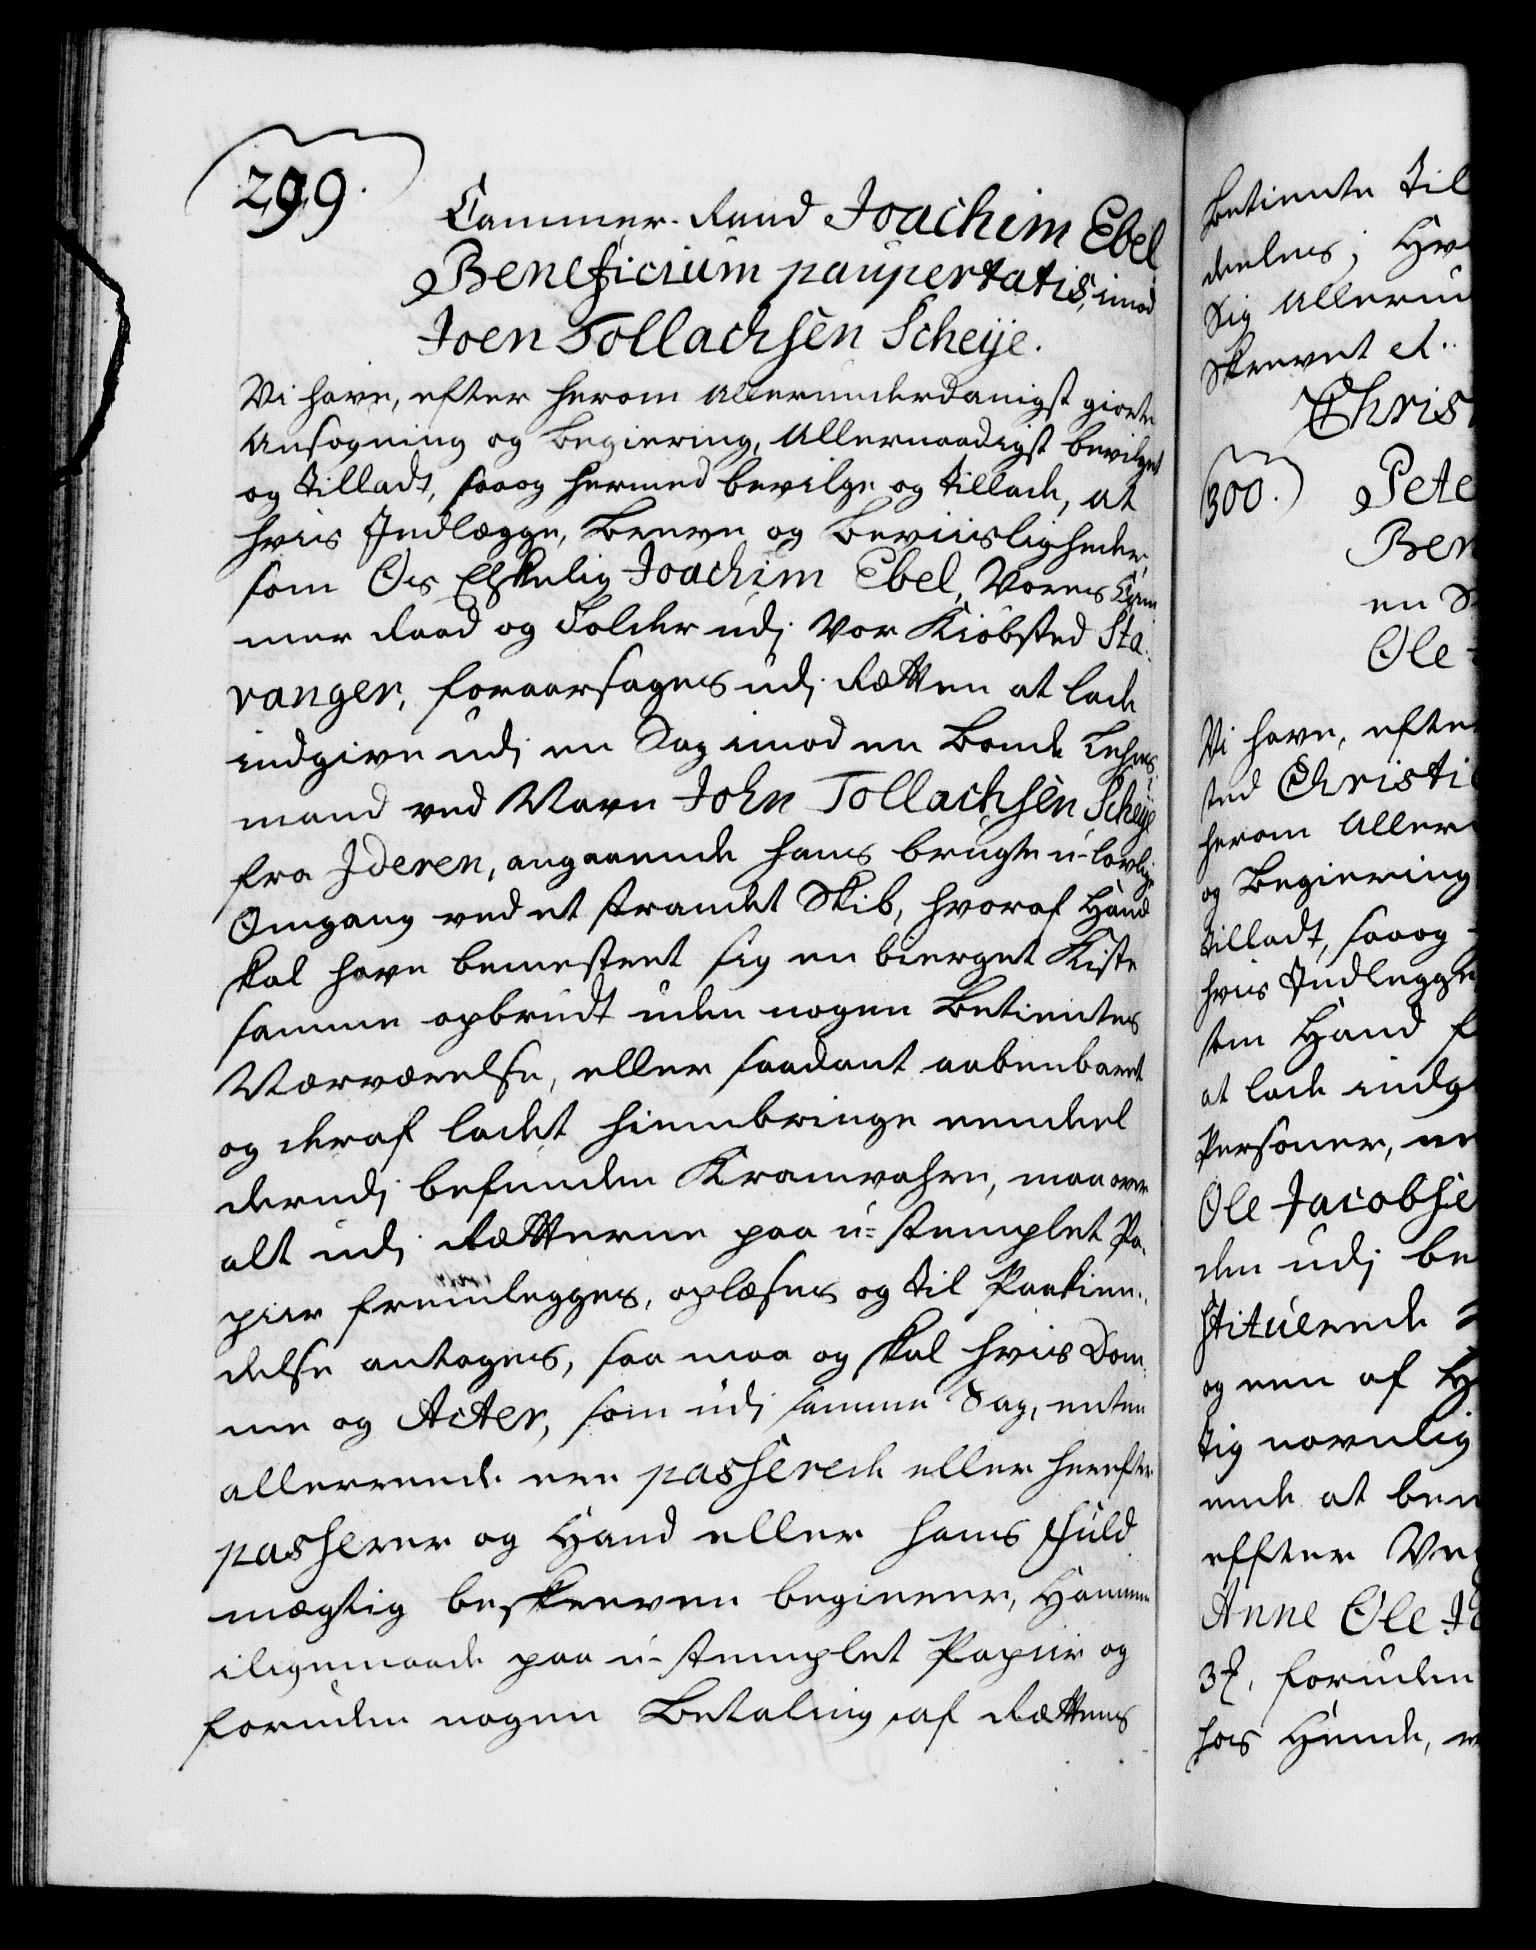 299.
Cammer-Raad Joachim Ebel
Beneficium paupertatis, imod
Joen Tollachsen Scheije.
Vi have, efter herom allerunderdanigst giorte
Ansøgning og Begiering, Allernaadigst bevilget
og tilladt, saa og hermed bevilge og tillade, at
hvis Indlægge, Breve og Beviisligheder,
som Os Elskelig Joachim Ebel, Vores Cam
mer Raad og Tolder udj Vor Kiøbsted Sta-
vanger, foraarsages udj Rætten at lade
indgive udj en Sag imod en Bonde Lehns
mand ved Navn John Tollachsen Scheije
fra Jderen, angaaende hans brugte u-lovlige
Omgang ved et strandet Skib, hvoraf Hand
skal have bemestret sig en bierget Kiste
samme opbrudt uden nogen Betientes
Nærværelse, eller saadant aabenbaret
og deraf ladet hiembringe eendeel
derudj befunden Kramvahre, maa over
alt udj Rætterne paa u-stemplet Pa-
piir fremlegges, oplæses og til Paakien-
delse antages, saa maa og skal hvis Dom-
me og Acter, som udj samme Sag, enten
allereede ere passerede eller herefter
passerer og Hand eller hans Fuld
mægtig beskreven begierer, Hannem
iligemaade paa u-stemplet Papiir og
foruden nogen Betaling af Rættens
Betiente til
deeles; Hv
sig Allerun
Skrevet d.
Christ
300. Pete
Ben
en S
Ole
Vi have, efter
sted Christi
herom Aller
og Begiering
tilladt, saa og
hvis Indlegge
som Hand f
at lade indg
Personer, ne
Ole Jacobse
den udj be
stituerede
og een af H
tig navnlig
ende at ben
effter Ve
Anne Ole J
3de, foruden
hos Hende,